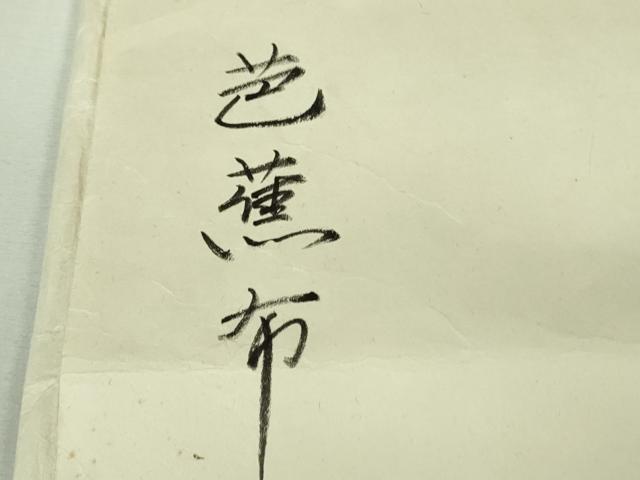 芭蕉布